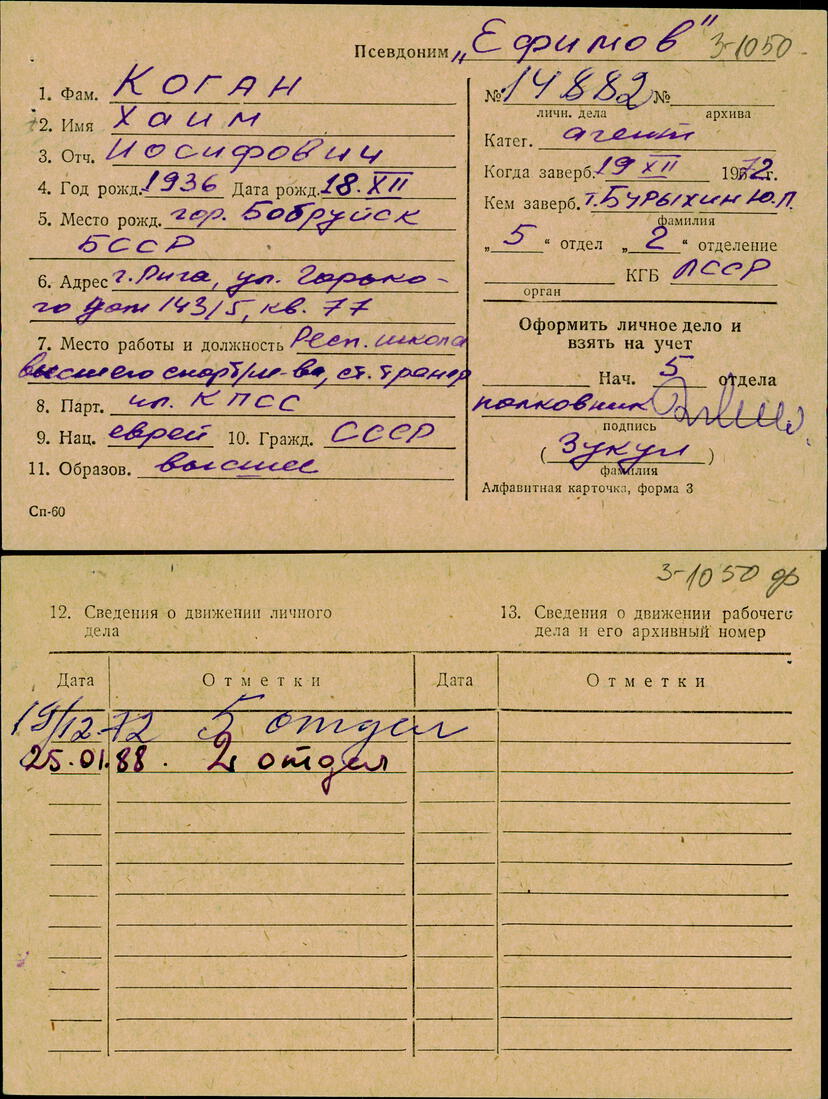 Псевдоним „Ефимов" 3-1050
1. Фам. Коган
2. Имя Хаим
3. Отч. Иосифович
4. Год рожд. 1936 Дата рожд. 18.XII
5. Место рожд. гор. Бобруйск
БССР
6. Адрес г. Рига, ул. Горько-
го дом 143/5, кв. 77
7. Место работы и должность Респ. школа
высшего спорт/м-ва, ст. тренер
8. Парт. чл. КПСС
9. Нац. еврей 10. Гражд. СССР
11. Образов. высшее
Сп-60
№ 14882 № 
личн. дела архива
Катег. агент
Когда заверб. 19 XII 1972г.
Кем заверб. т. Бурыхин Ю.П.
фамилия
„5" отдел „2" отделение
КГБ ЛССР
орган
Оформить личное дело и
взять на учет
Нач. 5 отдела
полковник
подпись
(Зукул)
фамилия
Алфавитная карточка, форма 3
3-1050 ф
12. Сведения о движении личного
дела
13. Сведения о движении рабочего
дела и его архивный номер
Дата Отметки Дата Отметки
19/12-72 5 отдел
25.01.88. 2 отдел